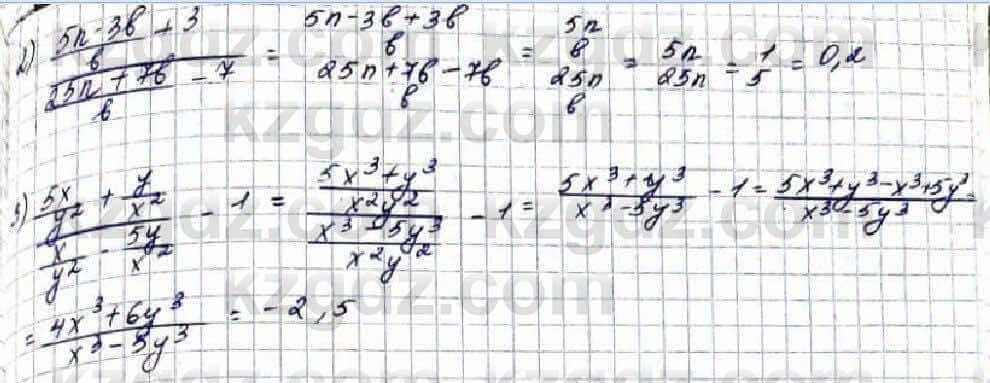 2) ((5n-3b)/b + 3)/((25n+7b)/b - 7) = ((5n-3b+3b)/b)/((25n+7b-7b)/b) = (5n/b)/(25n/b) = 5n/25n = 1/5 = 0,2
3) (5x/y² + y/x²)/(x/y² - 5y/x²) - 1 = ((5x³+y³)/(x²y²))/((x³-5y³)/(x²y²)) - 1 = (5x³+y³)/(x³-5y³) - 1 = (5x³+y³-x³+5y³)/(x³-5y³) =
= (4x³+6y³)/(x³-5y³) = -2,5
kzgdz.com